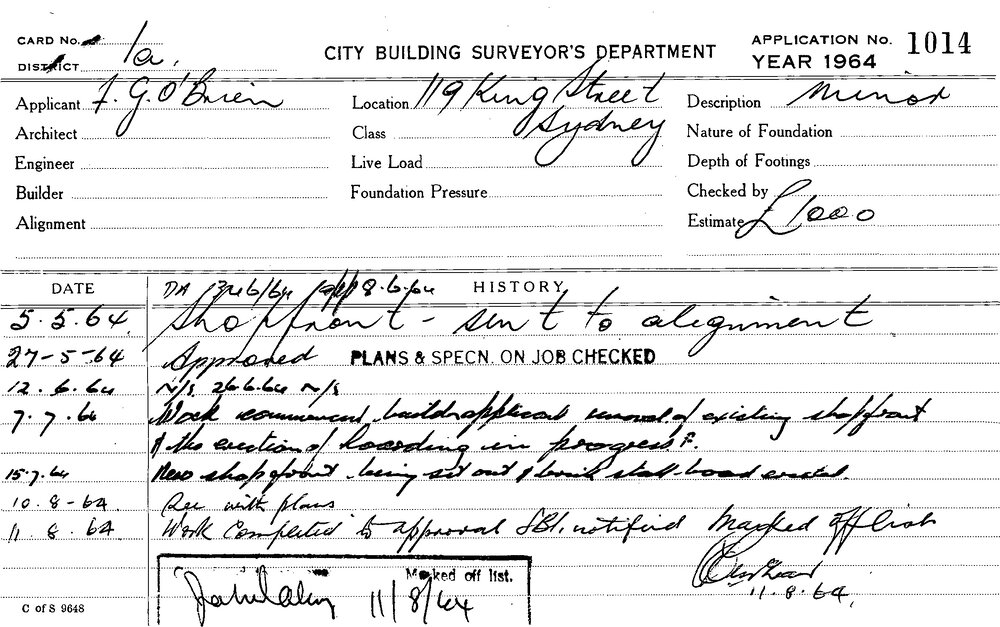 CARD No.
DISTRICT 1a.
CITY BUILDING SURVEYOR'S DEPARTMENT
APPLICATION No. 1014
YEAR 1964
Applicant F. G. O'Brien
Location 119 King Street
Sydney
Description Minor
Architect
Class
Nature of Foundation
Engineer
Live Load
Depth of Footings
Builder
Foundation Pressure
Checked by
Alignment
Estimate £1000
DATE
HISTORY
DA 8.6.64
5.5.64 Shopfront - sent to alignment
27-5-64 Approved PLANS & SPECN. ON JOB CHECKED
12.6.64 N/S 26.6.64 N/S
7.7.64 Work commenced, removal of existing shopfront
& the erection of hoarding in progress.
15.7.64 New shopfront being set out & brick stall-board
10.8-64 Rec with plans
11.8.64 Work Completed to approval notified Marked off list
11.8.64.
Marked off list.
11/8/64
C of S 9648